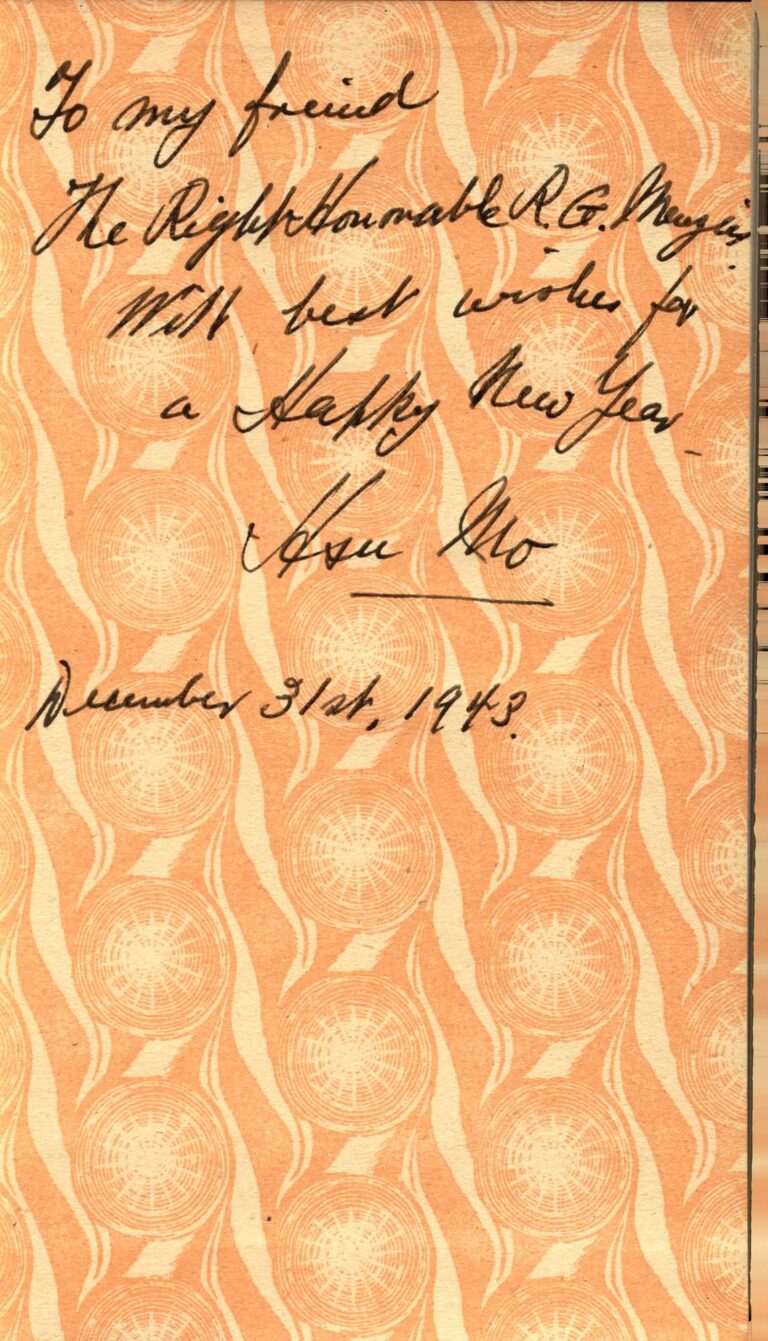 To my freind
The Right Honourable R. G. Menzies.
With best wishes for
a Happy New Year
Hsu Mo
December 31st, 1943.